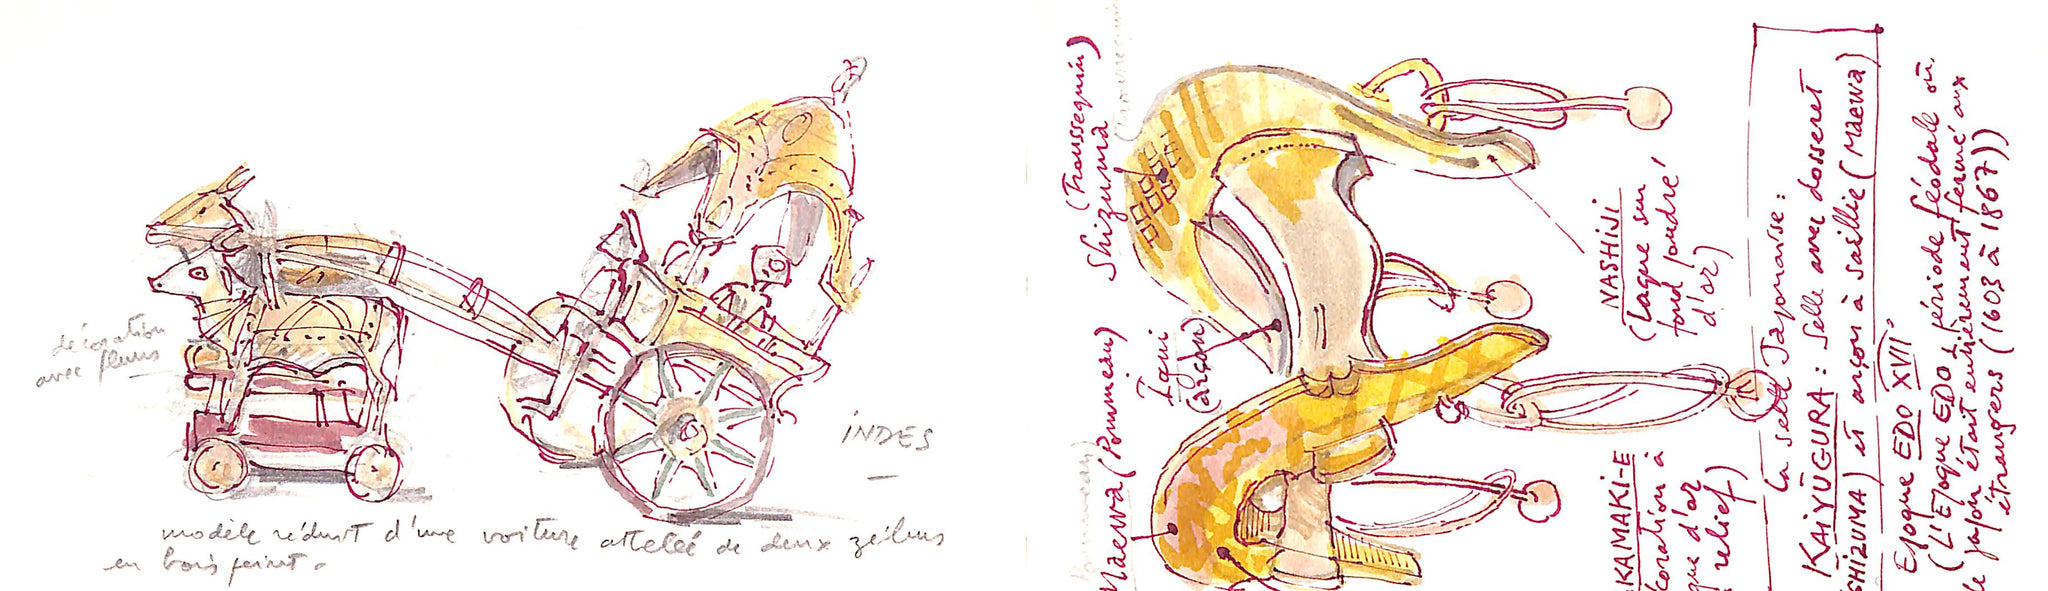 décoration
avec fleurs
INDES
modèle réduit d'une voiture attelée de deux zébus
en bois peint.
(Troussequin)
Shizuma
Maewa (Pommeau)
Igui
(arçon)
NASHIJI
(laque sur
fond poudré
d'or)
KAMAKI-E
coration à
que d'or
relief)
La selle Japonaise :
KAIYŪGURA : Selle avec dosseret
SHIZUMA) et arçon à saillie (MAEWA)
Epoque EDO XVII
(L'Epoque EDO, période féodale où
le Japon étant entièrement fermé aux
étrangers (1603 à 1867))